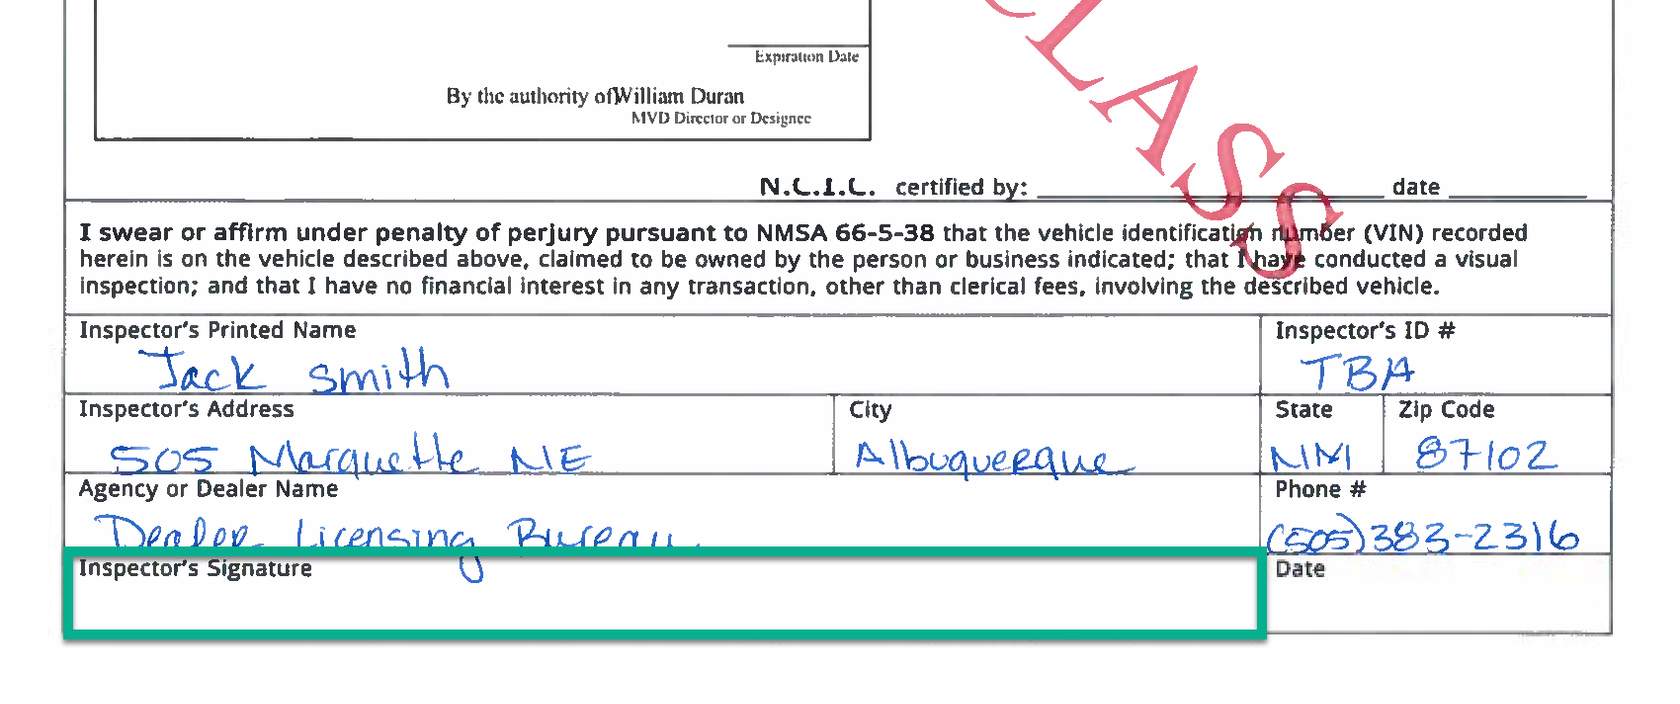 Expiration Date
By the authority of William Duran
MVD Director or Designee
CLASS
N.C.I.C. certified by: date
I swear or affirm under penalty of perjury pursuant to NMSA 66-5-38 that the vehicle identification number (VIN) recorded
herein is on the vehicle described above, claimed to be owned by the person or business indicated; that I have conducted a visual
inspection; and that I have no financial interest in any transaction, other than clerical fees, involving the described vehicle.
Inspector's Printed Name Inspector's ID #
Jack Smith TBA
Inspector's Address City State Zip Code
505 Marquette NE Albuquerque NM 87102
Agency or Dealer Name Phone #
Dealer Licensing Bureau (505)383-2316
Inspector's Signature Date